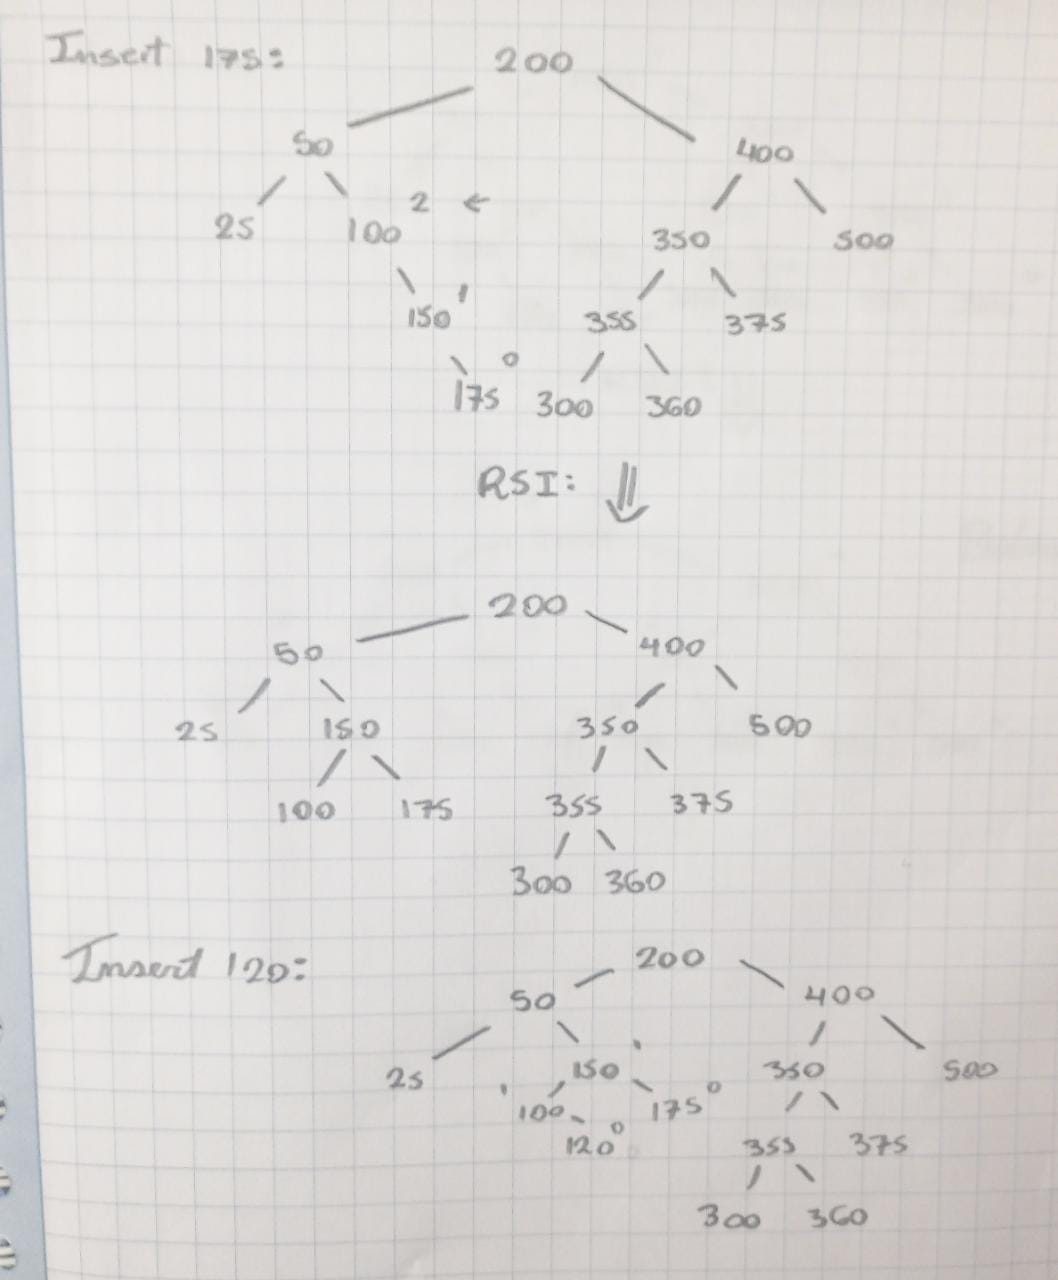 Insert 175:
200
50 400
25 100 2 ← 350 500
150 1 355 375
175 0 300 360
RSI: ⇓
200
50 400
25 150 350 500
100 175 355 375
300 360
Insert 120:
200
50 400
25 150 1 350 500
1 100 175 0
120 0 355 375
300 360